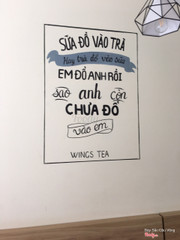 SỮA ĐỔ VÀO TRÀ
Hay trà đổ vào sữa
EM ĐỔ ANH RỒI
sao anh còn
CHƯA ĐỔ
vào em
WINGS TEA